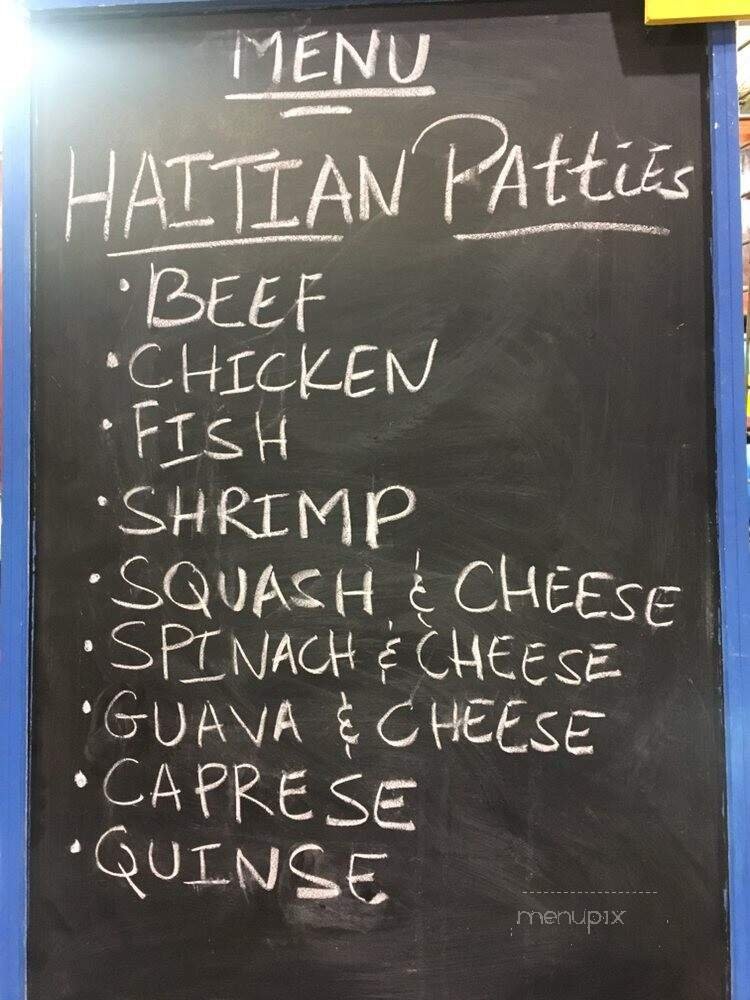 MENU
HAITIAN PAttiEs
• BEEF
• CHICKEN
• FISH
• SHRIMP
• SQUASH & CHEESE
• SPINACH & CHEESE
• GUAVA & CHEESE
• CAPRESE
• QUINSE
menupix